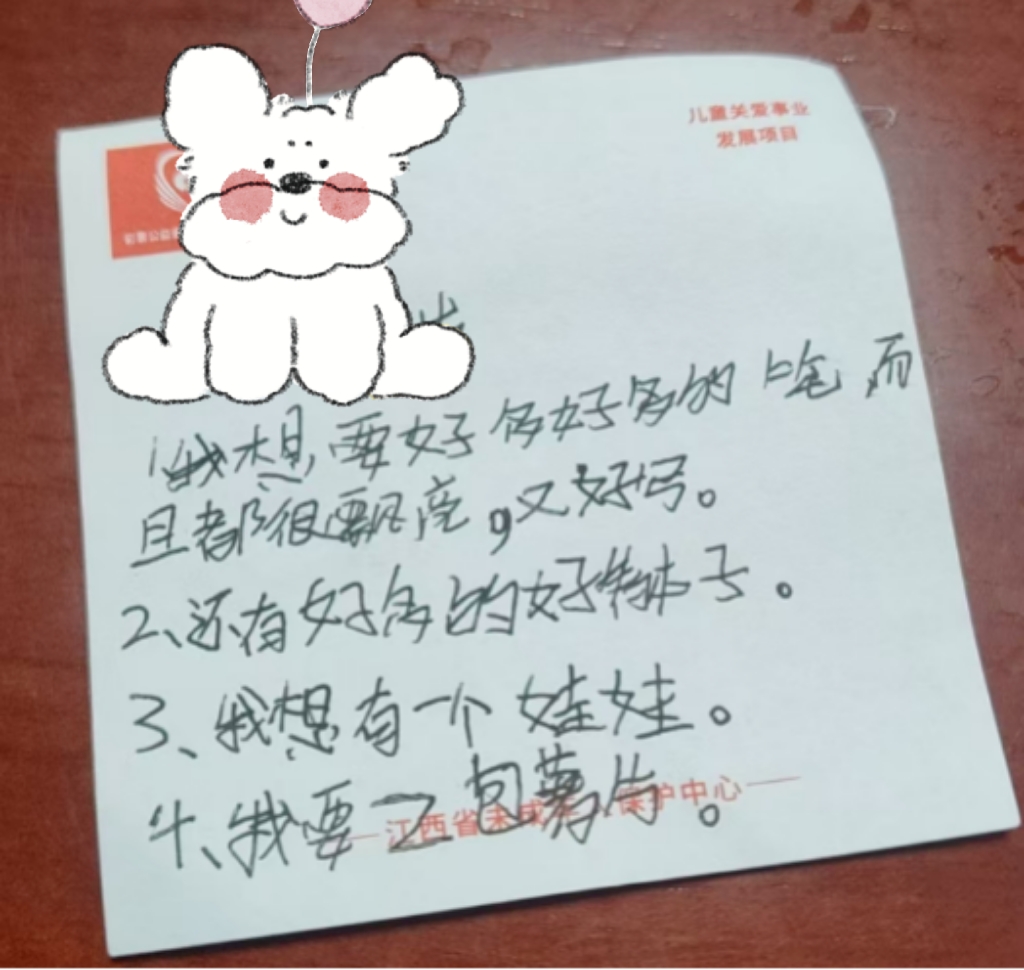 儿童关爱事业
发展项目
1我想要好多好多的笔,而
且都很飘亮,又好写。
2、还有好多的好本子。
3、我想有一个娃娃。
4、我要2包薯片。
江西省未成年人保护中心